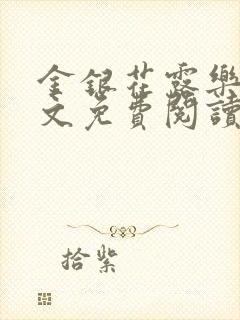 金銀花露樂
文免費閱讀
拾紫